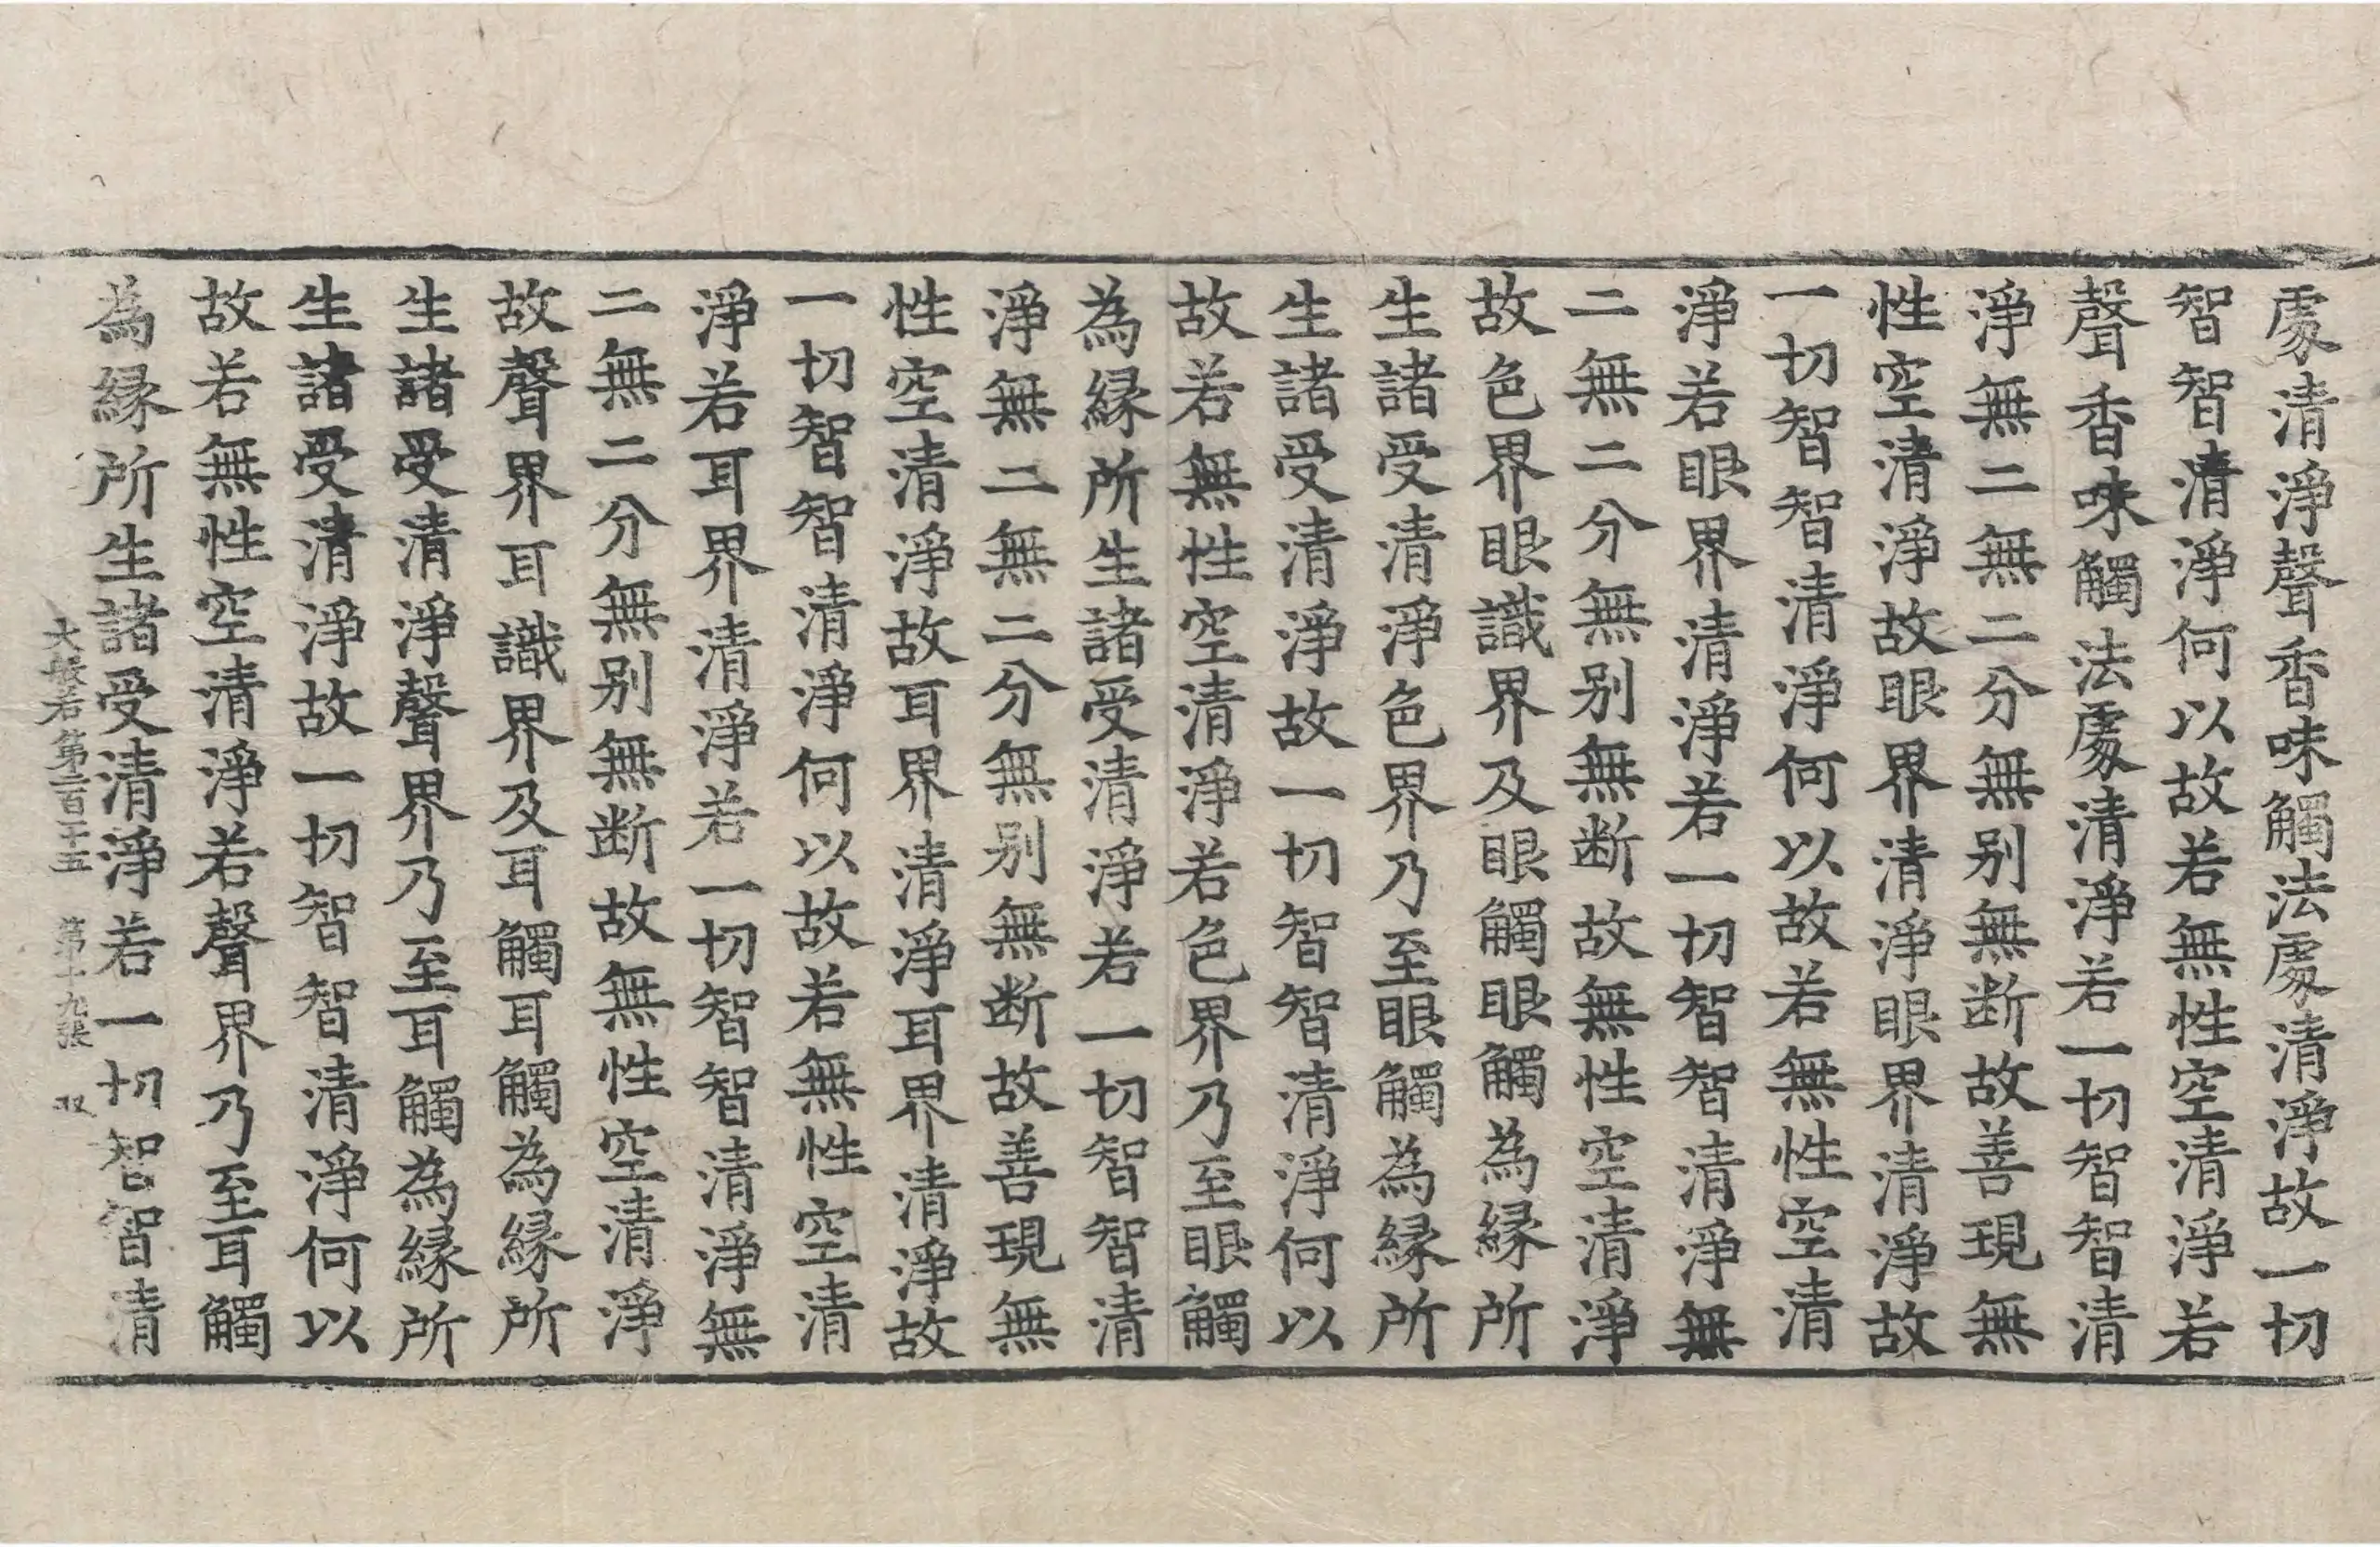 處清淨聲香味觸法處清淨故一切
智智清淨何以故若無性空清淨若
聲香味觸法處清淨若一切智智清
淨無二無二分無别無断故善現無
性空清淨故眼界清淨眼界清淨故
一切智智清淨何以故若無性空清
淨若眼界清淨若一切智智清淨無
二無二分無别無断故無性空清淨
故色界眼識界及眼觸眼觸為縁所
生諸受清淨色界乃至眼觸為縁所
生諸受清淨故一切智智清淨何以
故若無性空清淨若色界乃至眼觸
為縁所生諸受清淨若一切智智清
淨無二無二分無别無断故善現無
性空清淨故耳界清淨耳界清淨故
一切智智清淨何以故若無性空清
淨若耳界清淨若一切智智清淨無
二無二分無别無断故無性空清淨
故聲界耳識界及耳觸耳觸為縁所
生諸受清淨聲界乃至耳觸為縁所
生諸受清淨故一切智智清淨何以
故若無性空清淨若聲界乃至耳觸
為縁所生諸受清淨若一切智智清
大般若第二百二十五 第十九張 双